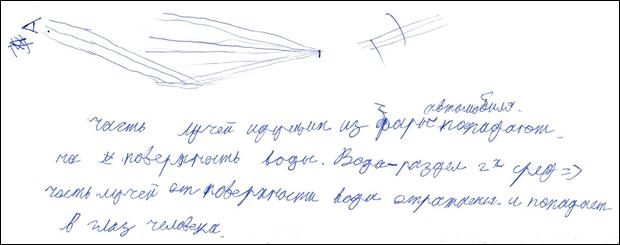 А
автомобиля.
часть лучей идущих из фары попадают
на поверхность воды. Вода-раздел 2х сред =>
часть лучей от поверхности воды отражены. и попадает
в глаз человека.